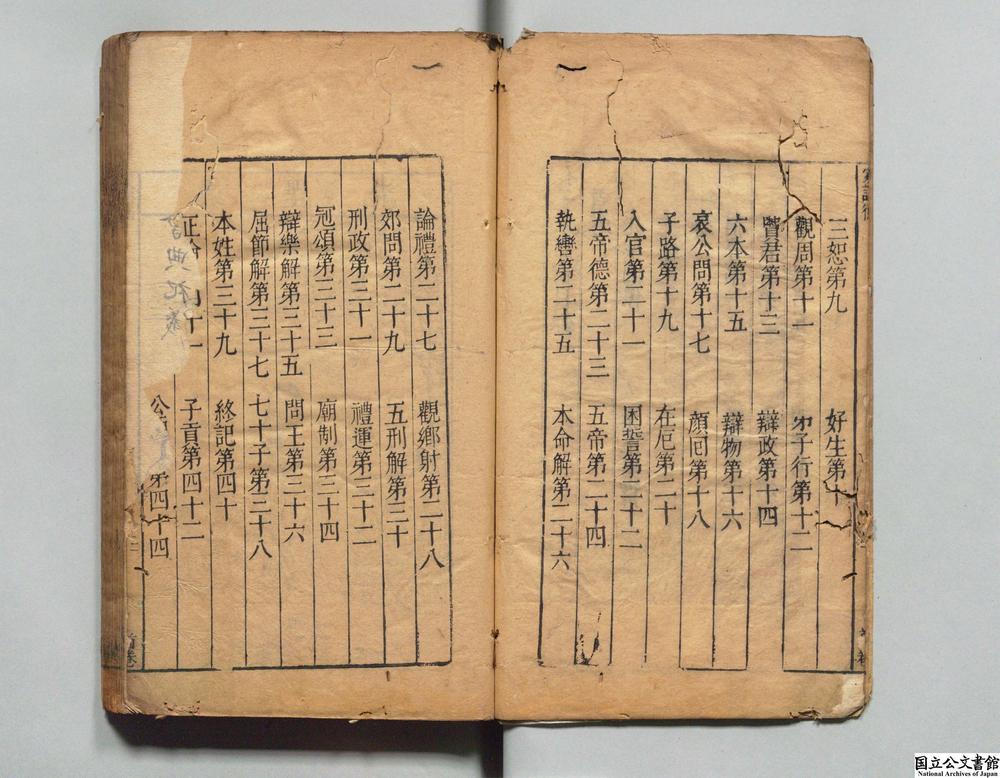 三恕第九 好生第十
觀周第十一 弟子行第十二
賢君第十三 辯政第十四
六本第十五 辯物第十六
哀公問第十七 顔回第十八
子路第十九 在厄第二十
入官第二十一 困誓第二十二
五帝德第二十三 五帝第二十四
執轡第二十五 本命解第二十六
論禮第二十七 觀鄉射第二十八
郊問第二十九 五刑解第三十
刑政第三十一 禮運第三十二
冠頌第三十三 廟制第三十四
辯樂解第三十五 問玉第三十六
屈節解第三十七 七十子第三十八
本姓第三十九 終記第四十
正論 四十一 子貢第四十二
公 第四十四
首卷
国立公文書館
National Archives of Japan